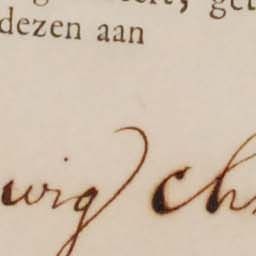 dezen aan
wig ch